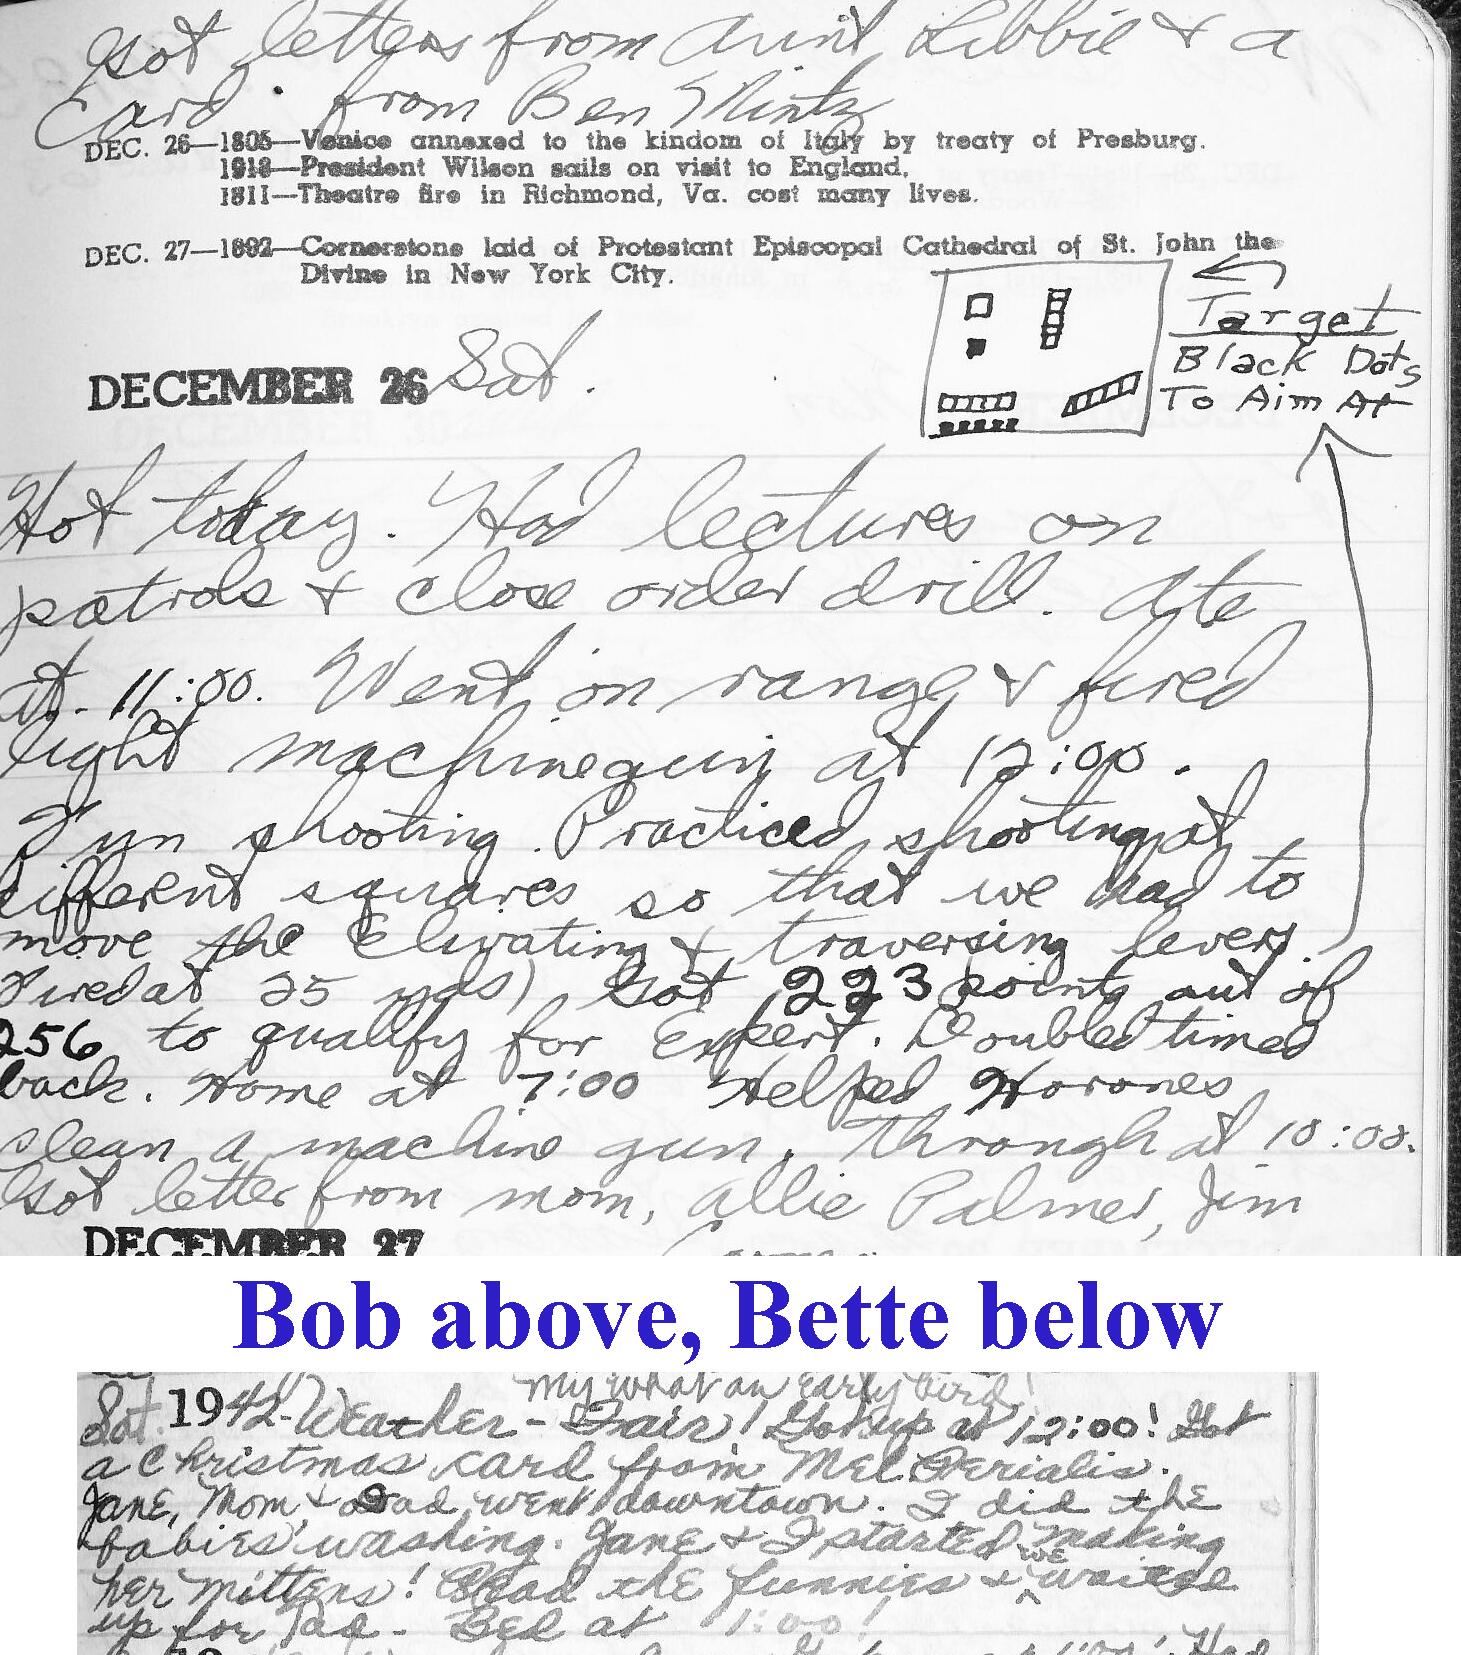 Got letters from Aunt Libbie & a
card from Ben Mintz
DEC. 26—1805—Venice annexed to the kindom of Italy by treaty of Presburg.
1918—President Wilson sails on visit to England.
1811—Theatre fire in Richmond, Va. cost many lives.
DEC. 27—1892—Cornerstone laid of Protestant Episcopal Cathedral of St. John the
Divine in New York City.
Target
Black Dots
To Aim At
DECEMBER 26 Sat.
Hot today. Had lectures on
patrols & close order drill. Ate
at 11:00. Went on range & fired
light machinegun at 12:00.
Fun shooting. Practiced shooting at
different squares so that we had to
move the elivating & traversing levers.
Fired at 25 yds) Got 223 points out of
256 to qualify for Expert. Doubled timed
back. Home at 7:00 Helped
clean a machine gun. Through at 10:00.
Got letter from mom, Allie Palmer, Jim
DECEMBER 27
Bob above, Bette below
My what an early bird!
Sat. 1942- Weather - Fair! Got up at 12:00! Got
a Christmas card from Mel
Jane, Mom & Dad went downtown. I did the
babies' washing. Jane & I started making
her mittens! Read the funnies & we waited
up for Tad. Bed at 1:00!